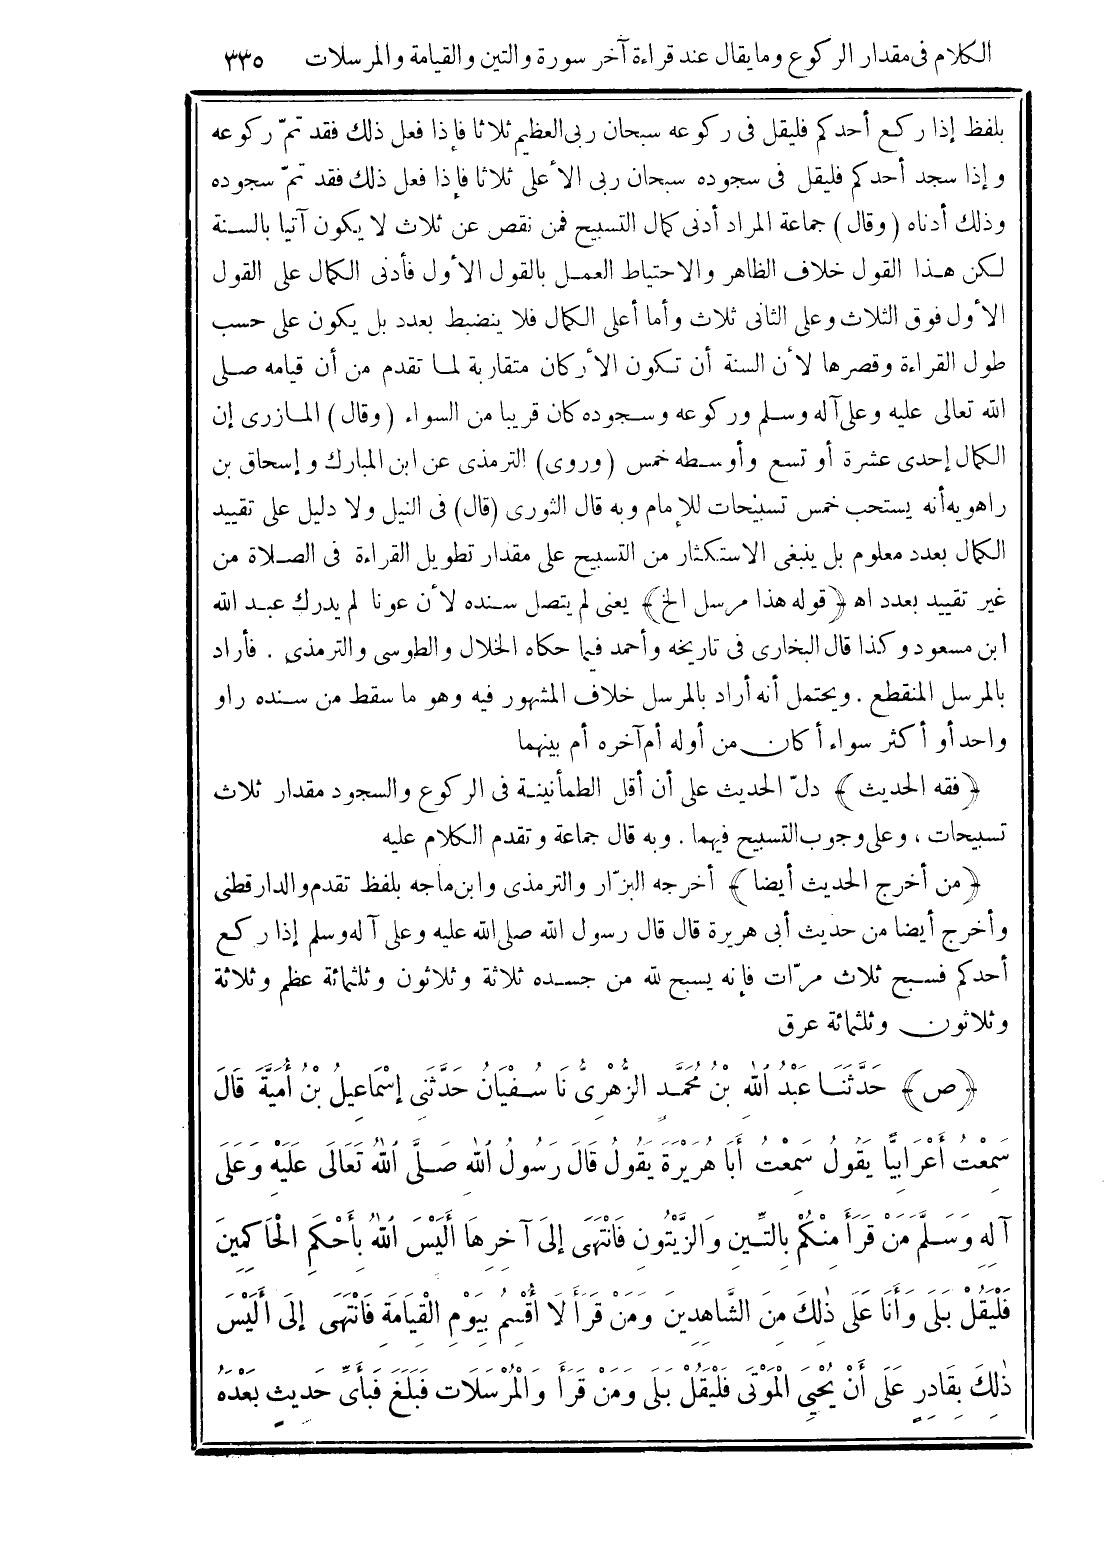 الكلام فى مقدار الركوع وما يقال عند قراءة آخر سورة والتين والقيامة والمرسلات ٣٣٥
بلفظ إذا ركع أحدكم فليقل فى ركوعه سبحان ربى العظيم ثلاثا فإذا فعل ذلك فقد تمّ ركوعه
وإذا سجد أحدكم فليقل فى سجوده سبحان ربى الأعلى ثلاثا فإذا فعل ذلك فقد تمّ سجوده
وذلك أدناه (وقال) جماعة المراد أدنى كمال التسبيح فمن نقص عن ثلاث لا يكون آتيا بالسنة
لكن هذا القول خلاف الظاهر والاحتياط العمل بالقول الأول فأدنى الكمال على القول
الأول فوق الثلاث وعلى الثانى ثلاث وأما أعلى الكمال فلا ينضبط بعدد بل يكون على حسب
طول القراءة وقصرها لأن السنة أن تكون الأركان متقاربة لما تقدم من أن قيامه صلى
الله تعالى عليه وعلى آله وسلم وركوعه وسجوده كان قريبا من السواء (وقال) المازرى إن
الكمال إحدى عشرة أو تسع وأوسطه خمس (وروى) الترمذى عن ابن المبارك وإسحاق بن
راهويه أنه يستحب خمس تسبيحات للإمام وبه قال الثورى (قال) فى النيل ولا دليل على تقييد
الكمال بعدد معلوم بل ينبغى الاستكثار من التسبيح على مقدار تطويل القراءة فى الصلاة من
غير تقييد بعدد اه ﴿قوله هذا مرسل الخ﴾ يعنى لم يتصل سنده لأن عونا لم يدرك عبد الله
ابن مسعود وكذا قال البخارى فى تاريخه وأحمد فيما حكاه الخلال والطوسى والترمذى . فأراد
بالمرسل المنقطع . ويحتمل أنه أراد بالمرسل خلاف المشهور فيه وهو ما سقط من سنده راو
واحد أو أكثر سواء أكان من أوله أم آخره أم بينهما
﴿فقه الحديث﴾ دلّ الحديث على أن أقل الطمأنينة فى الركوع والسجود مقدار ثلاث
تسبيحات ، وعلى وجوب التسبيح فيهما . وبه قال جماعة وتقدم الكلام عليه
﴿من أخرج الحديث أيضا﴾ أخرجه البزّار والترمذى وابن ماجه بلفظ تقدم والدارقطنى
وأخرج أيضا من حديث أبى هريرة قال قال رسول الله صلى الله عليه وعلى آله وسلم إذا ركع
أحدكم فسبح ثلاث مرّات فإنه يسبح لله من جسده ثلاثة وثلاثون وثلثمائة عظم وثلاثة
وثلاثون وثلثمائة عرق
﴿ص﴾ حَدَّثَنَا عَبْدُ اللهِ بْنُ مُحَمَّدٍ الزُّهْرِىُّ نَا سُفْيَانُ حَدَّثَنِى إِسْمَاعِيلُ بْنُ أُمَيَّةَ قَالَ
سَمِعْتُ أَعْرَابِيًّا يَقُولُ سَمِعْتُ أَبَا هُرَيْرَةَ يَقُولُ قَالَ رَسُولُ اللهِ صَلَّى اللهُ تَعَالَى عَلَيْهِ وَعَلَى
آلِهِ وَسَلَّمَ مَنْ قَرَأَ مِنْكُمْ بِالتِّينِ وَالزَّيْتُونِ فَانْتَهَى إِلَى آخِرِهَا أَلَيْسَ اللهُ بِأَحْكَمِ الْحَاكِمِينَ
فَلْيَقُلْ بَلَى وَأَنَا عَلَى ذٰلِكَ مِنَ الشَّاهِدِينَ وَمَنْ قَرَأَ لَا أُقْسِمُ بِيَوْمِ الْقِيَامَةِ فَانْتَهَى إِلَى أَلَيْسَ
ذٰلِكَ بِقَادِرٍ عَلَى أَنْ يُحْيِىَ الْمَوْتَى فَلْيَقُلْ بَلَى وَمَنْ قَرَأَ وَالْمُرْسَلَاتِ فَبَلَغَ فَبِأَىِّ حَدِيثٍ بَعْدَهُ